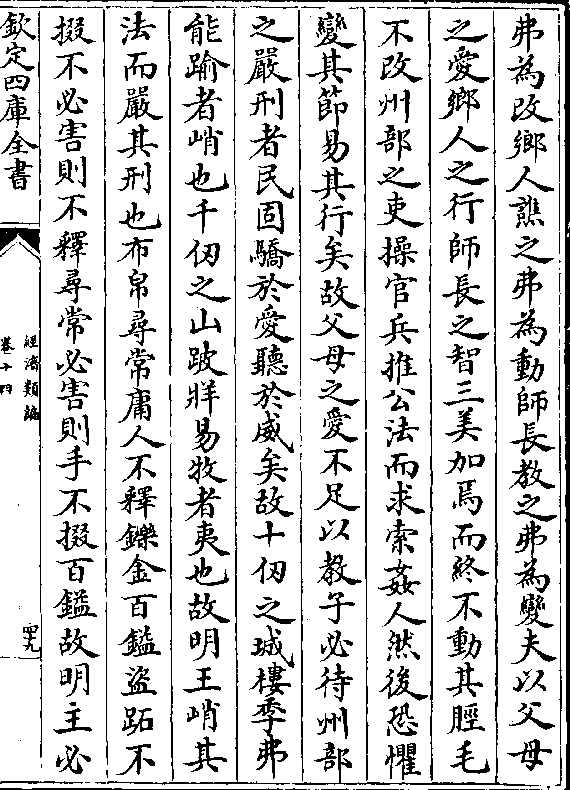 弗為改鄉人譙之弗為動師長教之弗為變夫以父母
之愛鄉人之行師長之智三美加焉而終不動其脛毛
不改州部之吏操官兵推公法而求索姦人然後恐懼
變其節易其行矣故父母之愛不足以教子必待州部
之嚴刑者民固驕於愛聽於威矣故十仞之城樓季弗
能踰者峭也千仞之山跛牂易牧者夷也故明王峭其
法而嚴其刑也布帛尋常庸人不釋鑠金百鎰盜跖不
掇不必害則不釋尋常必害則手不掇百鎰故明主必
欽定四庫全書
經濟類編
卷十四
四九